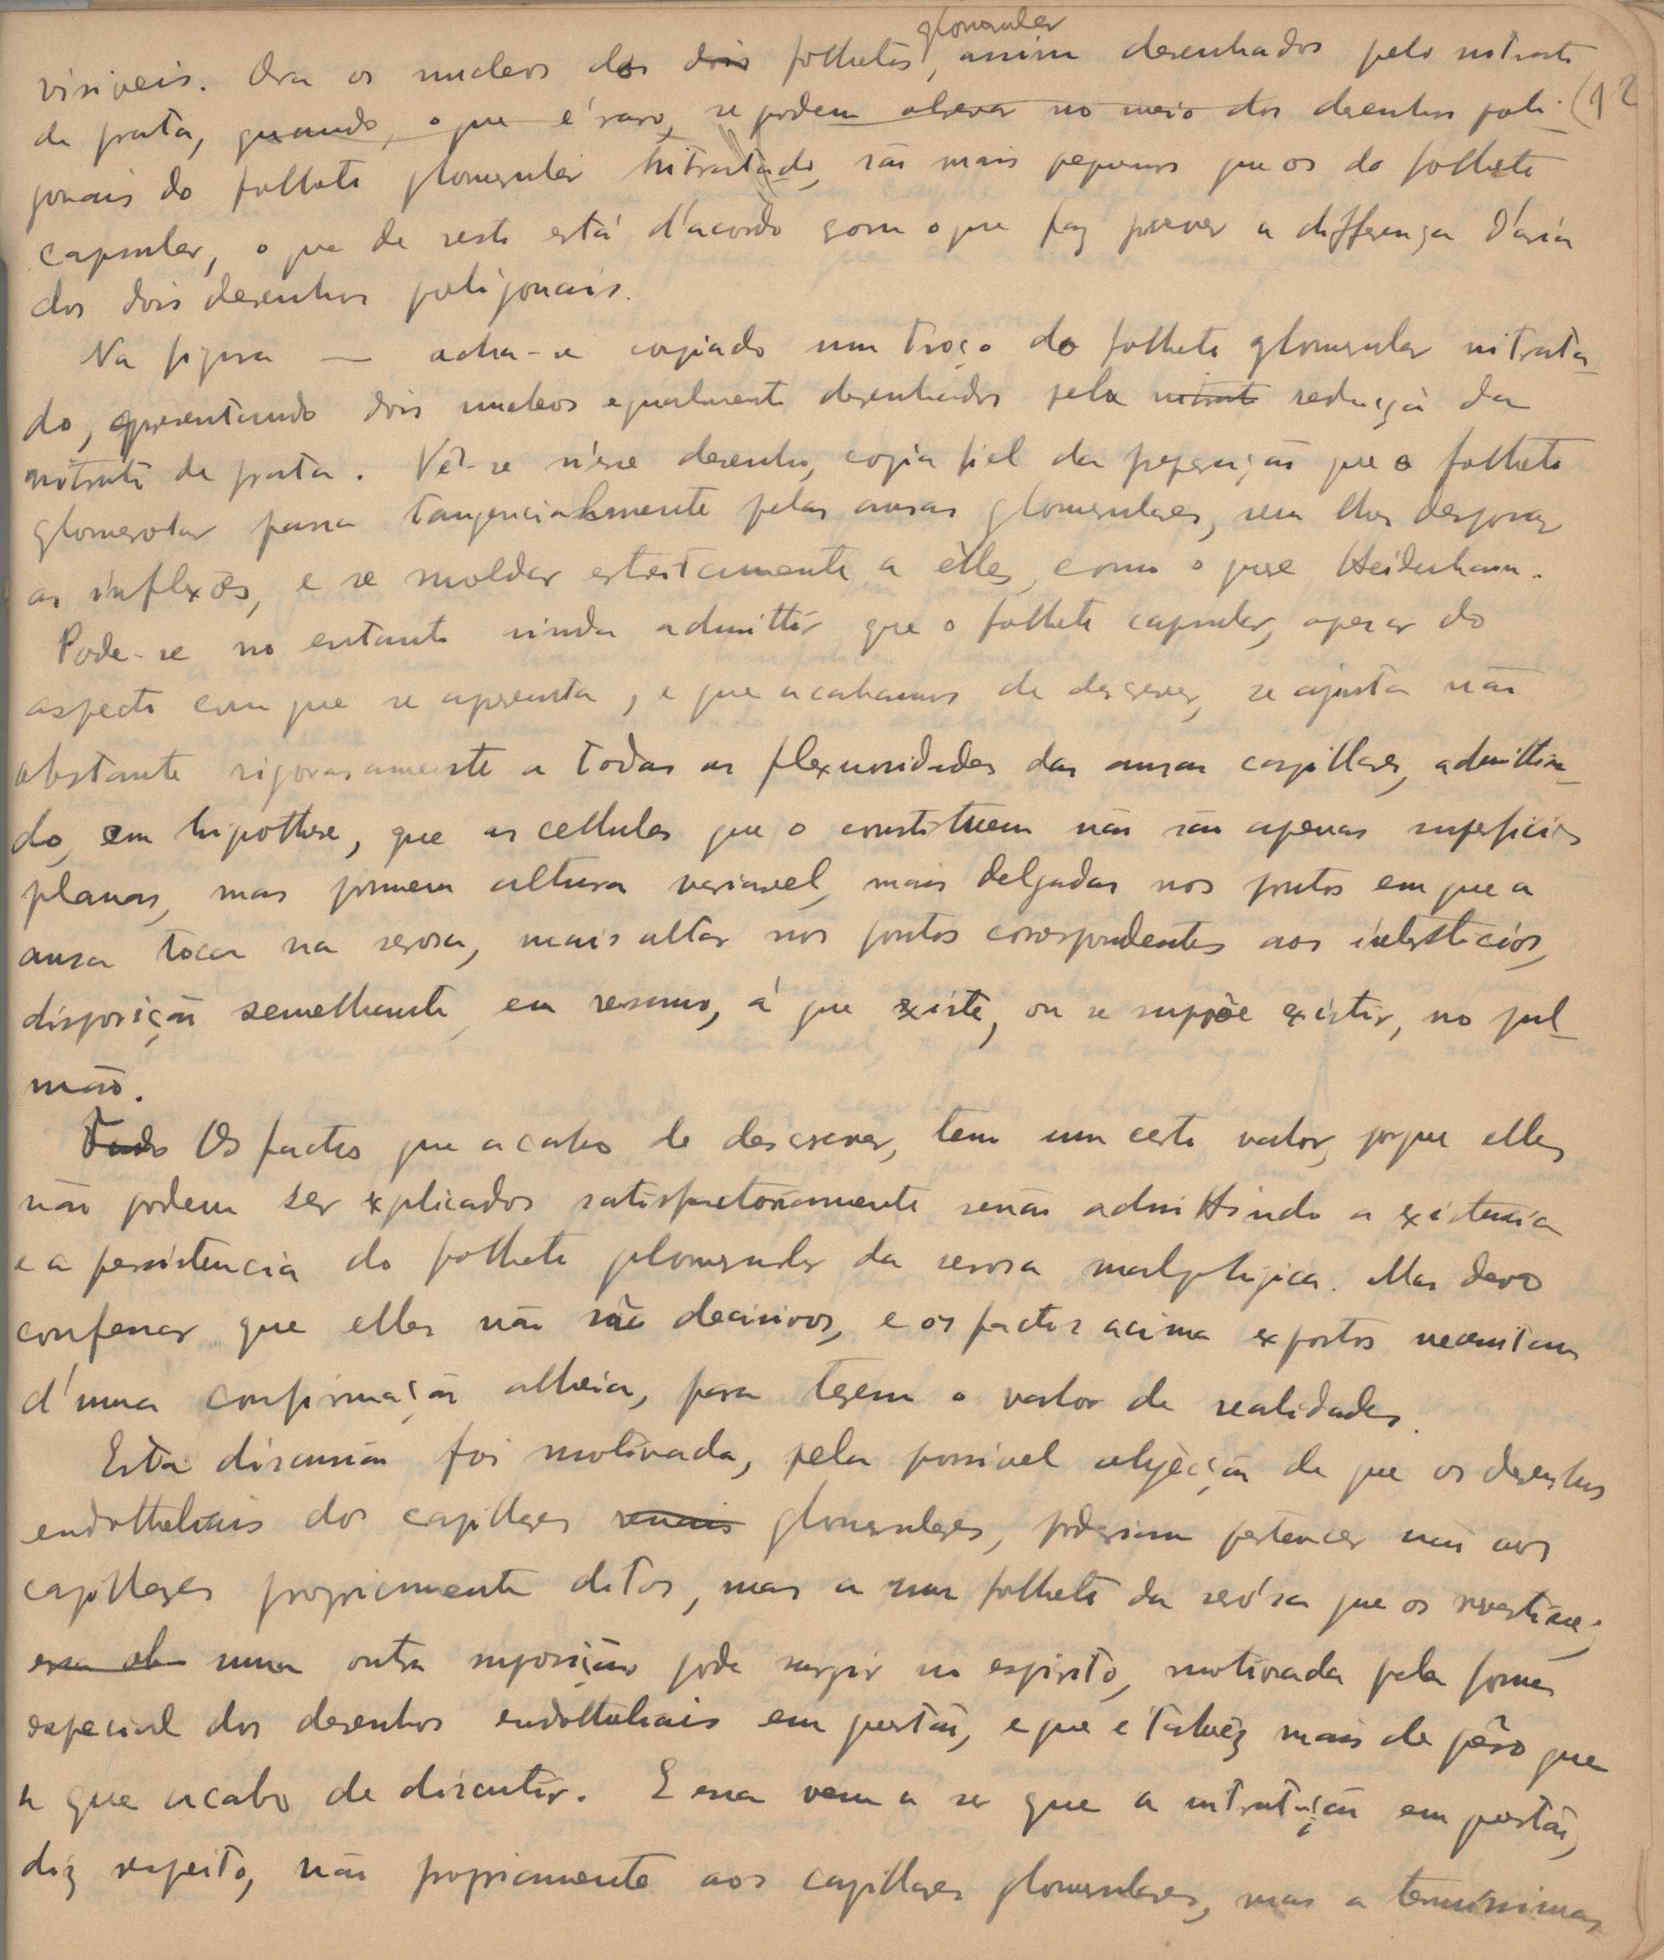 visiveis. Ora os nucleos dos dois folhetos glomerular, assim desenhados pelo nitrato
de prata, quando, o que é raro, se podem observar no meio dos desenhos poli- (12
gonais do folheto glomerular nitratado, são mais pequenos que os do folheto
capsular, o que de resto está d'acordo com o que faz prever a differença d'aria
dos dois desenhos poligonais.
Na figura — acha-se copiado um troço do folheto glomerular nitrata-
do, apresentando dois nucleos egualmente desenhados pela nitrato redução do
nitrato de prata. Vê-se n'esse desenho, copia fiel da preparação que o folheto
glomerular passa tangencialmente pelas ansas glomerulares, sem lhes desposar
as inflexões, e se moldar estreitamente a elles, como o quer Heidenhain.
Pode-se no entanto ainda admittir que o folheto capsular, apesar do
aspecto com que se apresenta, e que acabamos de descrever, se ajusta não
obstante rigorosamente a todas as flexuosidades das ansas capillares, admittin-
do, em hipothese, que as cellulas que o constituem não são apenas superficies
planas, mas possuem altura variavel, mais delgadas nos pontos em que a
ansa toca na serosa, mais altas nos pontos correspondentes aos intersticios,
disposição semelhante, em resumo, á que existe, ou se suppõe existir, no pul-
mão.
Todo Os factos que acabo de descrever, tem um certo valor, porque elles
não podem ser explicados satisfactoriamente senão admittindo a existencia
e a persistencia do folheto glomerular da serosa malpighica. Mas devo
confessar que elles não são decisivos, e os factos acima expostos necessitam
d'uma confirmação alheia, para terem o valor de realidades.
Esta discussão foi motivada, pela possivel objecção de que os desenhos
endotheliais dos capillares renais glomerulares, poderiam pertencer não aos
capillares propriamente ditos, mas a um folheto da serosa que os revestisse;
essa ob uma outra suposição pode surgir no espirito, motivada pela forma
especial dos desenhos endotheliais em questão, e que é talvez mais de pêso que
a que acabo de discutir. E essa vem a ser que a nitratação em questão,
diz respeito, não propriamente aos capillares glomerulares, mas a terminimas